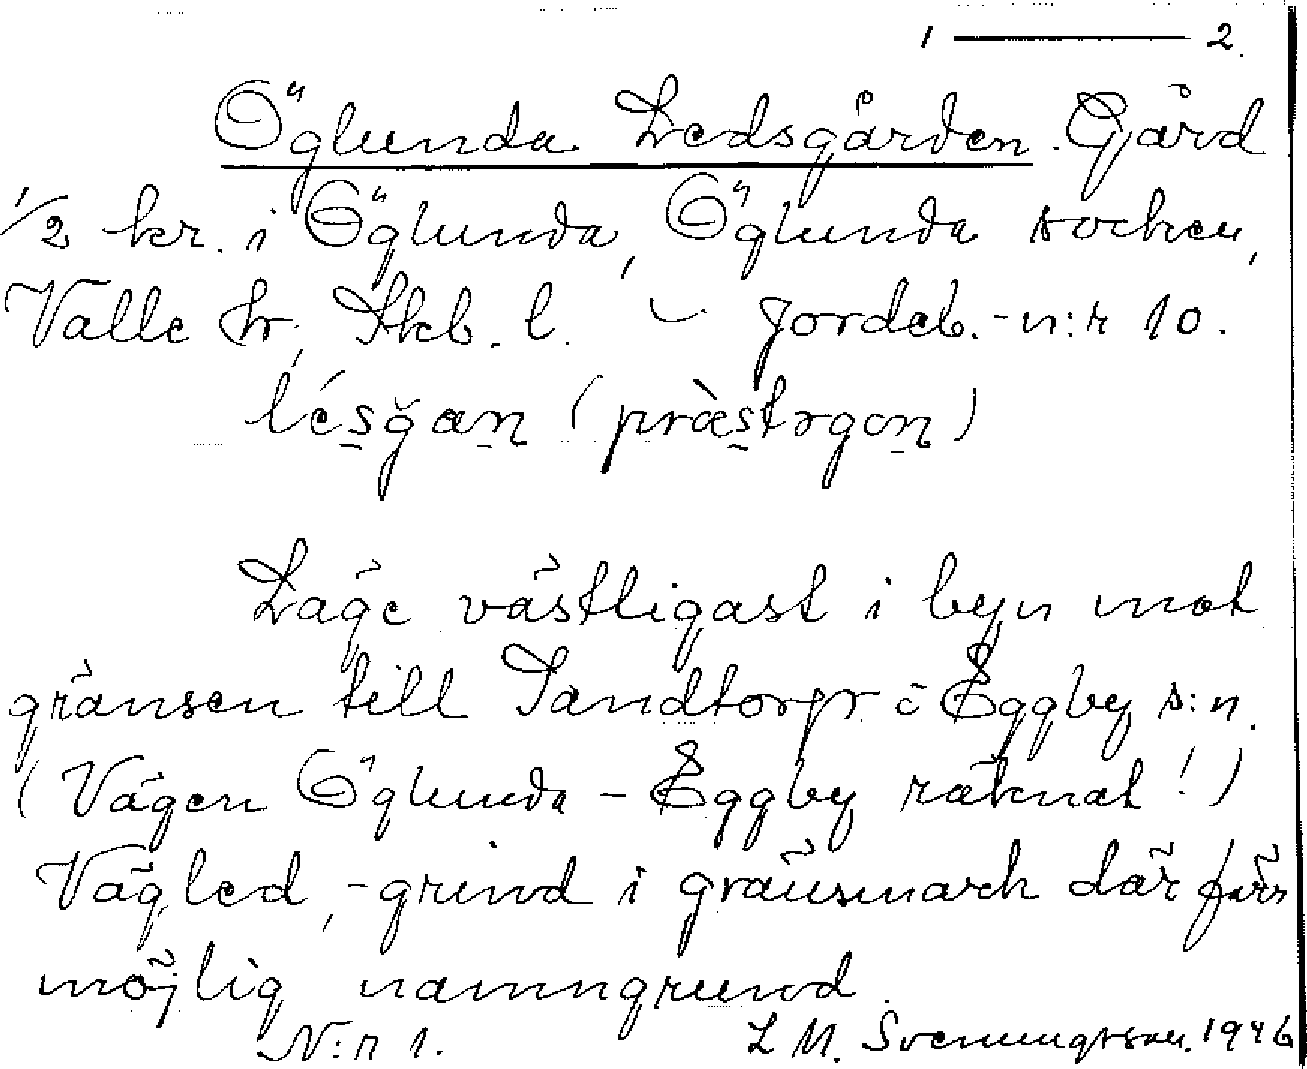 1 — 2.
Öglunda Ledsgården. Gård
1/2 kr. i Öglunda, Öglunda socken,
Valle hr, Skb. l. Jordeb.-n:r 10.
lésğan (præstrgon)
Läge västligast i byn mot
gränsen till Sandtorp i Eggby s:n.
(Vägen Öglunda - Eggby räknat!)
Vägled, -grind i gränsmark där förr
möjlig namngrund.
N:r 1. L M. Svenungsson. 1946